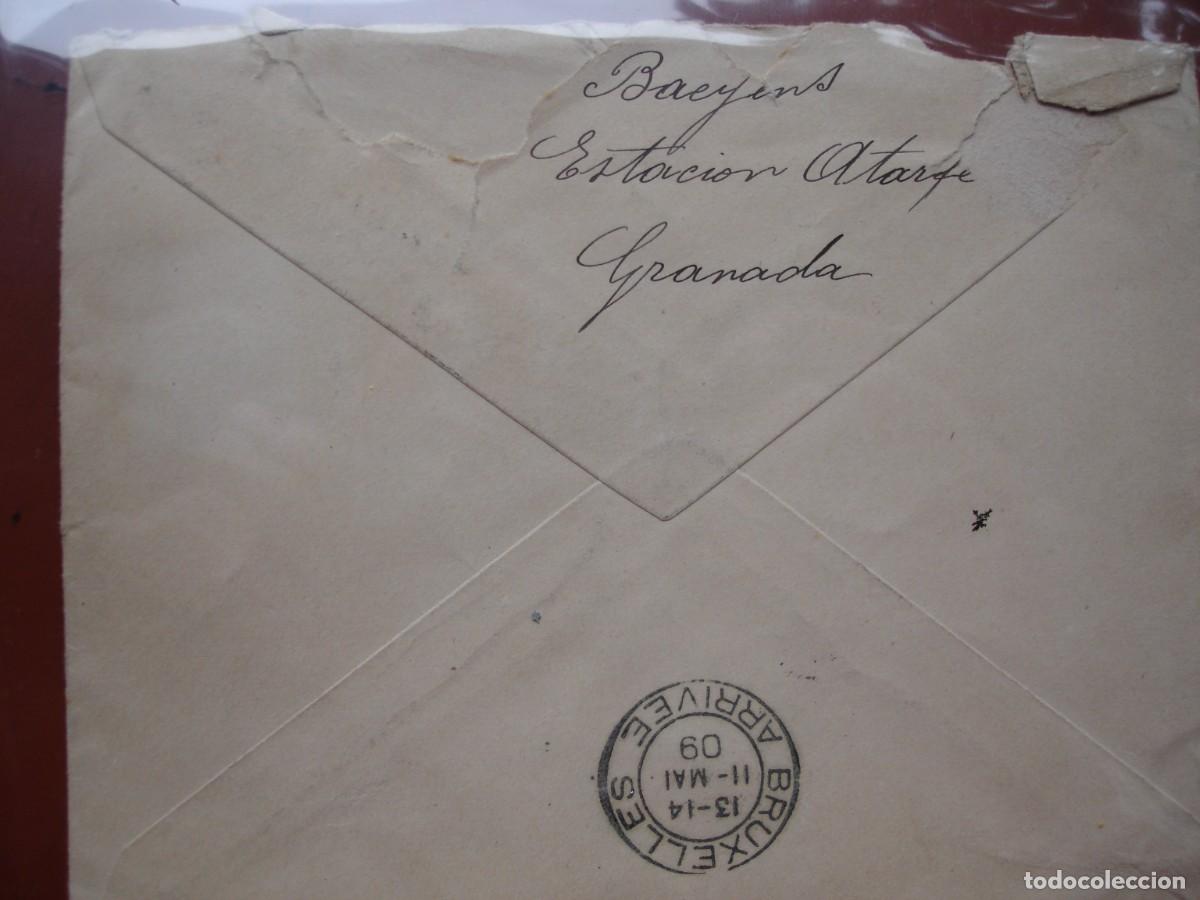 Baeyens
Estacion Atarfe
Granada
BRUXELLES
13-14
11-MAI
09
ARRIVEE
todocoleccion